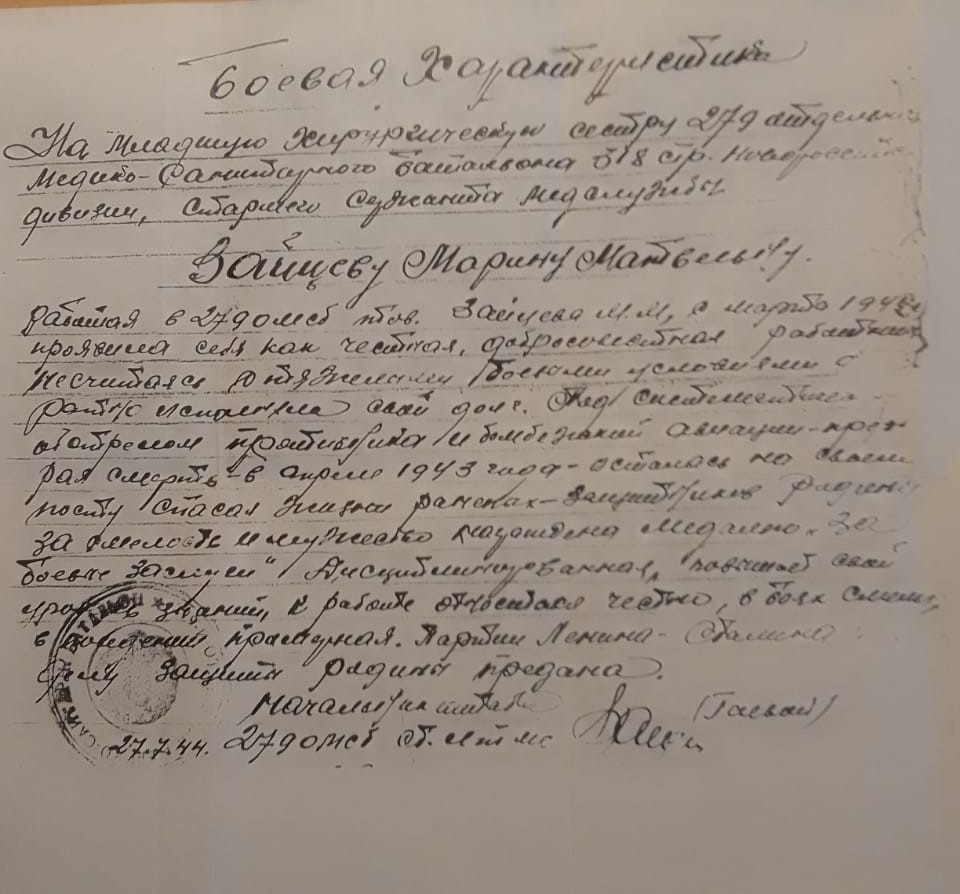 Боевая Характеристика
На младшую хирургическую сестру 279 отдельного
медико-санитарного батальона 318 стр. Новороссийск
дивизии, старшего сержанта медслужбы
Зайцеву Марину Матвеевну.
Работая в 279 омсб тов. Зайцева М.М, с марта 194
проявила себя как честная, добросовестная работник
несчитаясь с тяжелыми боевыми условиями
исполняла свой долг. Под систематич
обстрелом противника и бомбежкой авиации-през
рая смерть-в апреле 1943 года-осталась на своем
посту спасая жизни раненых-защитников Родины
За смелость и мужество награждена медалью „За
боевые заслуги" Дисциплинированная, повышает свой
уров. знаний, к работе относится честно, в боях смела,
в поведении примерная. Партии Ленина-Сталина
делу защиты родины предана.
Начальник штаба
27.7.44. 279 омсб ст. л-т мс (Гаевой)